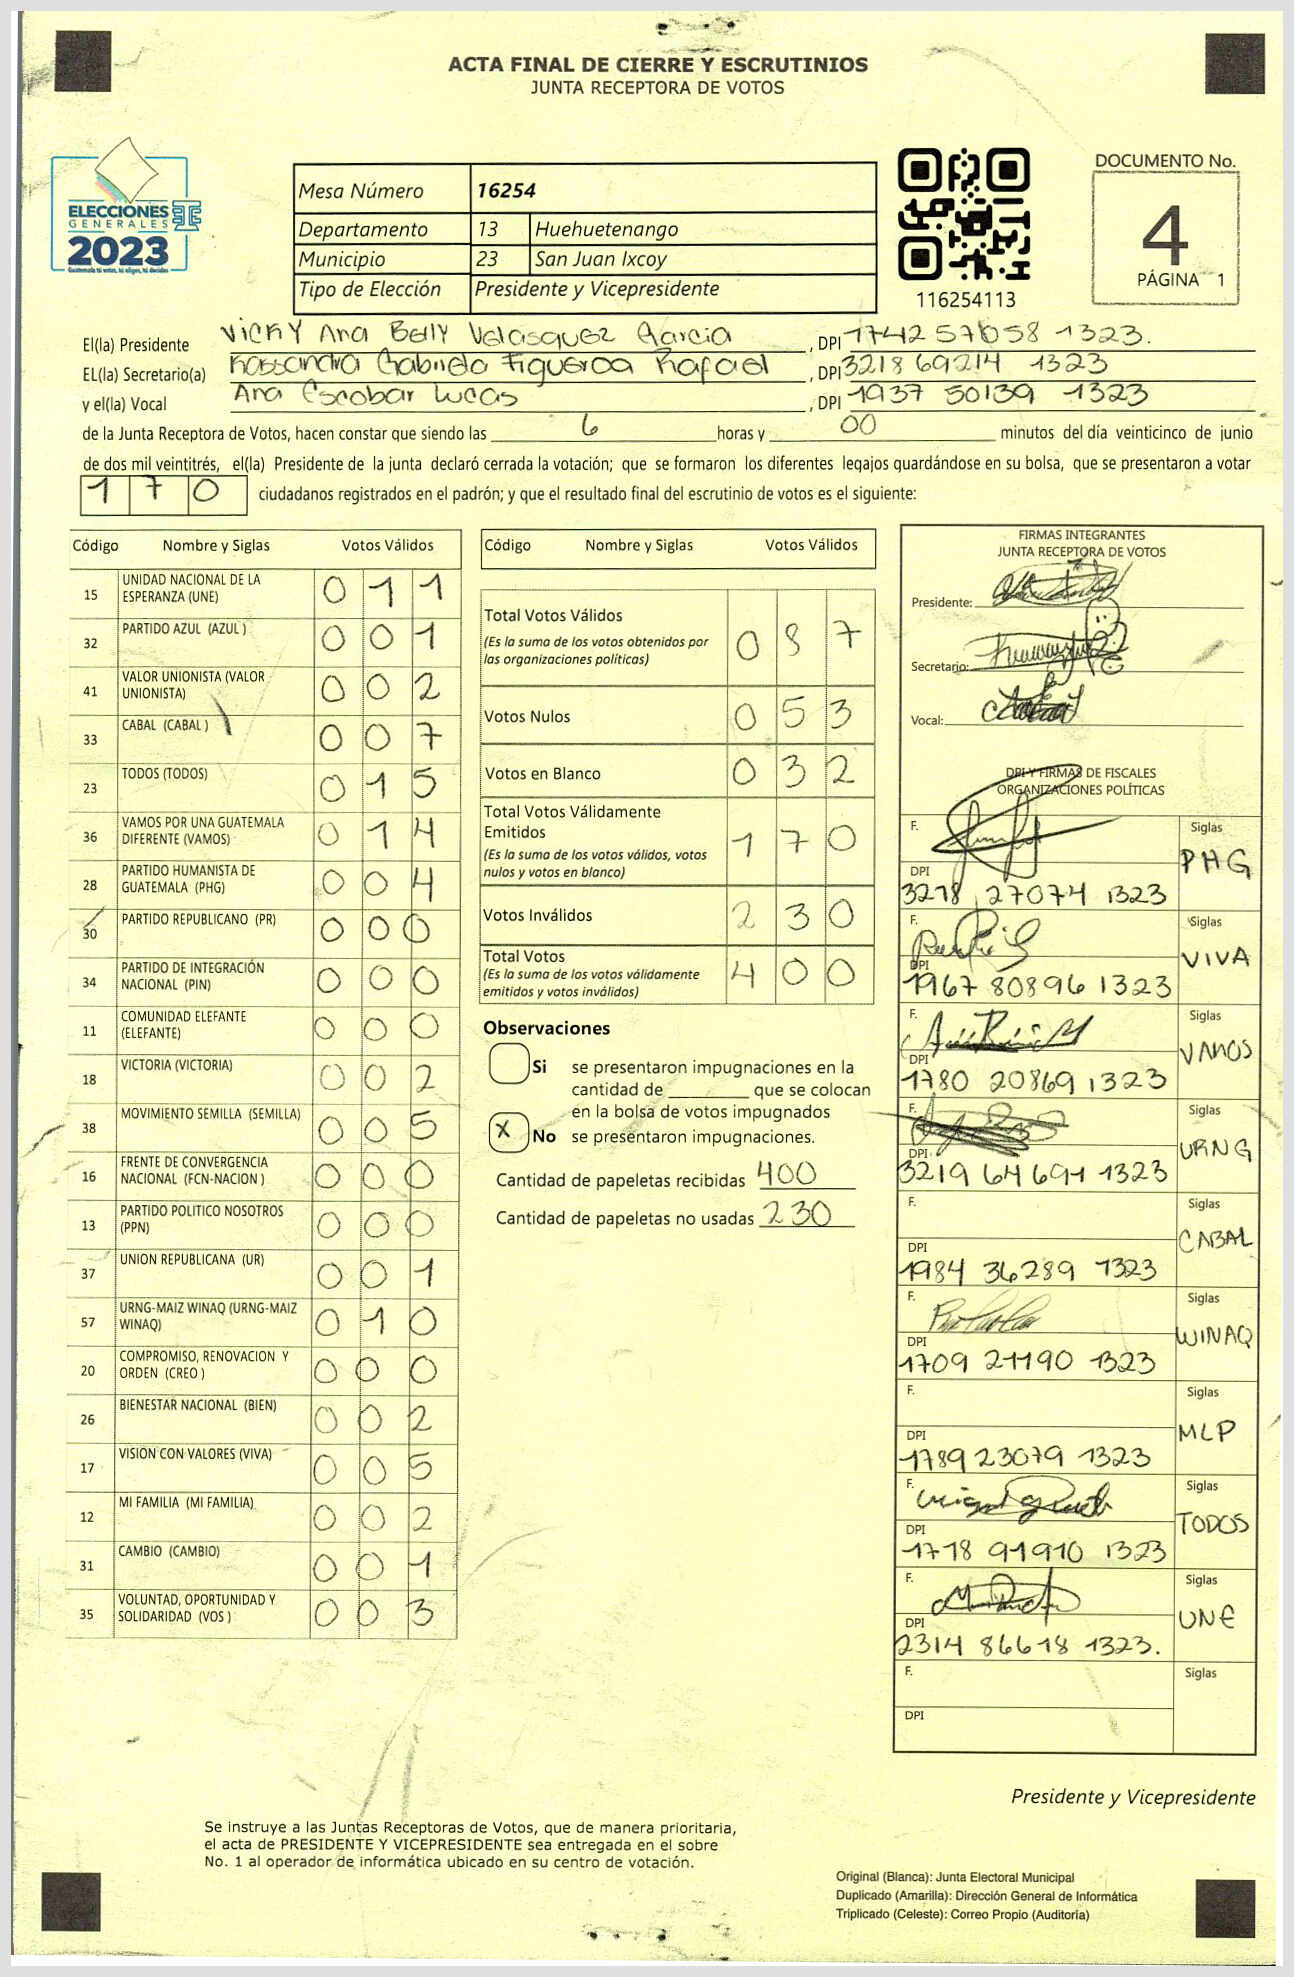 ACTA FINAL DE CIERRE Y ESCRUTINIOS
JUNTA RECEPTORA DE VOTOS
ELECCIONES
GENERALES
2023
Guatemala tú votas, tú eliges, tú decides
Mesa Número 16254
Departamento 13 Huehuetenango
Municipio 23 San Juan Ixcoy
Tipo de Elección Presidente y Vicepresidente
116254113
DOCUMENTO No.
4
PÁGINA 1
El(la) Presidente Vicky Ana Belly Velasquez Garcia, DPI 1742 57658 1323.
EL(la) Secretario(a) Kassandra Gabriela Figueroa Rafael, DPI 3218 69214 1323
y el(la) Vocal Ana Escobar Lucas, DPI 1937 50139 1323
de la Junta Receptora de Votos, hacen constar que siendo las 6 horas y 00 minutos del día veinticinco de junio
de dos mil veintitrés, el(la) Presidente de la junta declaró cerrada la votación; que se formaron los diferentes legajos guardándose en su bolsa, que se presentaron a votar
170 ciudadanos registrados en el padrón; y que el resultado final del escrutinio de votos es el siguiente:
Código Nombre y Siglas Votos Válidos
15 UNIDAD NACIONAL DE LA ESPERANZA (UNE) 011
32 PARTIDO AZUL (AZUL ) 001
41 VALOR UNIONISTA (VALOR UNIONISTA) 002
33 CABAL (CABAL ) 007
23 TODOS (TODOS) 015
36 VAMOS POR UNA GUATEMALA DIFERENTE (VAMOS) 014
28 PARTIDO HUMANISTA DE GUATEMALA (PHG) 004
30 PARTIDO REPUBLICANO (PR) 000
34 PARTIDO DE INTEGRACIÓN NACIONAL (PIN) 000
11 COMUNIDAD ELEFANTE (ELEFANTE) 000
18 VICTORIA (VICTORIA) 002
38 MOVIMIENTO SEMILLA (SEMILLA) 005
16 FRENTE DE CONVERGENCIA NACIONAL (FCN-NACION ) 000
13 PARTIDO POLITICO NOSOTROS (PPN) 000
37 UNION REPUBLICANA (UR) 001
57 URNG-MAIZ WINAQ (URNG-MAIZ WINAQ) 010
20 COMPROMISO, RENOVACION Y ORDEN (CREO ) 000
26 BIENESTAR NACIONAL (BIEN) 002
17 VISION CON VALORES (VIVA) 005
12 MI FAMILIA (MI FAMILIA) 002
31 CAMBIO (CAMBIO) 001
35 VOLUNTAD, OPORTUNIDAD Y SOLIDARIDAD (VOS ) 003
Código Nombre y Siglas Votos Válidos
Total Votos Válidos 087
(Es la suma de los votos obtenidos por
las organizaciones políticas)
Votos Nulos 053
Votos en Blanco 032
Total Votos Válidamente
Emitidos 170
(Es la suma de los votos válidos, votos
nulos y votos en blanco)
Votos Inválidos 230
Total Votos 400
(Es la suma de los votos válidamente
emitidos y votos inválidos)
Observaciones
Si se presentaron impugnaciones en la
cantidad de ________ que se colocan
en la bolsa de votos impugnados
X No se presentaron impugnaciones.
Cantidad de papeletas recibidas 400
Cantidad de papeletas no usadas 230
FIRMAS INTEGRANTES
JUNTA RECEPTORA DE VOTOS
Presidente:
Secretario:
Vocal:
DPI Y FIRMAS DE FISCALES
ORGANIZACIONES POLÍTICAS
F. Siglas PHG
DPI 3278 27074 1323
F. Siglas VIVA
DPI 1967 80896 1323
F. Siglas VAMOS
DPI 1780 20869 1323
F. Siglas URNG
DPI 3219 64691 1323
F. Siglas CABAL
DPI 1984 36289 1323
F. Siglas WINAQ
DPI 1709 21190 1323
F. Siglas MLP
DPI 1789 23079 1323
F. Siglas TODOS
DPI 1778 91910 1323
F. Siglas UNE
DPI 2314 86618 1323.
F. Siglas
DPI
Presidente y Vicepresidente
Se instruye a las Juntas Receptoras de Votos, que de manera prioritaria,
el acta de PRESIDENTE Y VICEPRESIDENTE sea entregada en el sobre
No. 1 al operador de informática ubicado en su centro de votación.
Original (Blanca): Junta Electoral Municipal
Duplicado (Amarilla): Dirección General de Informática
Triplicado (Celeste): Correo Propio (Auditoría)